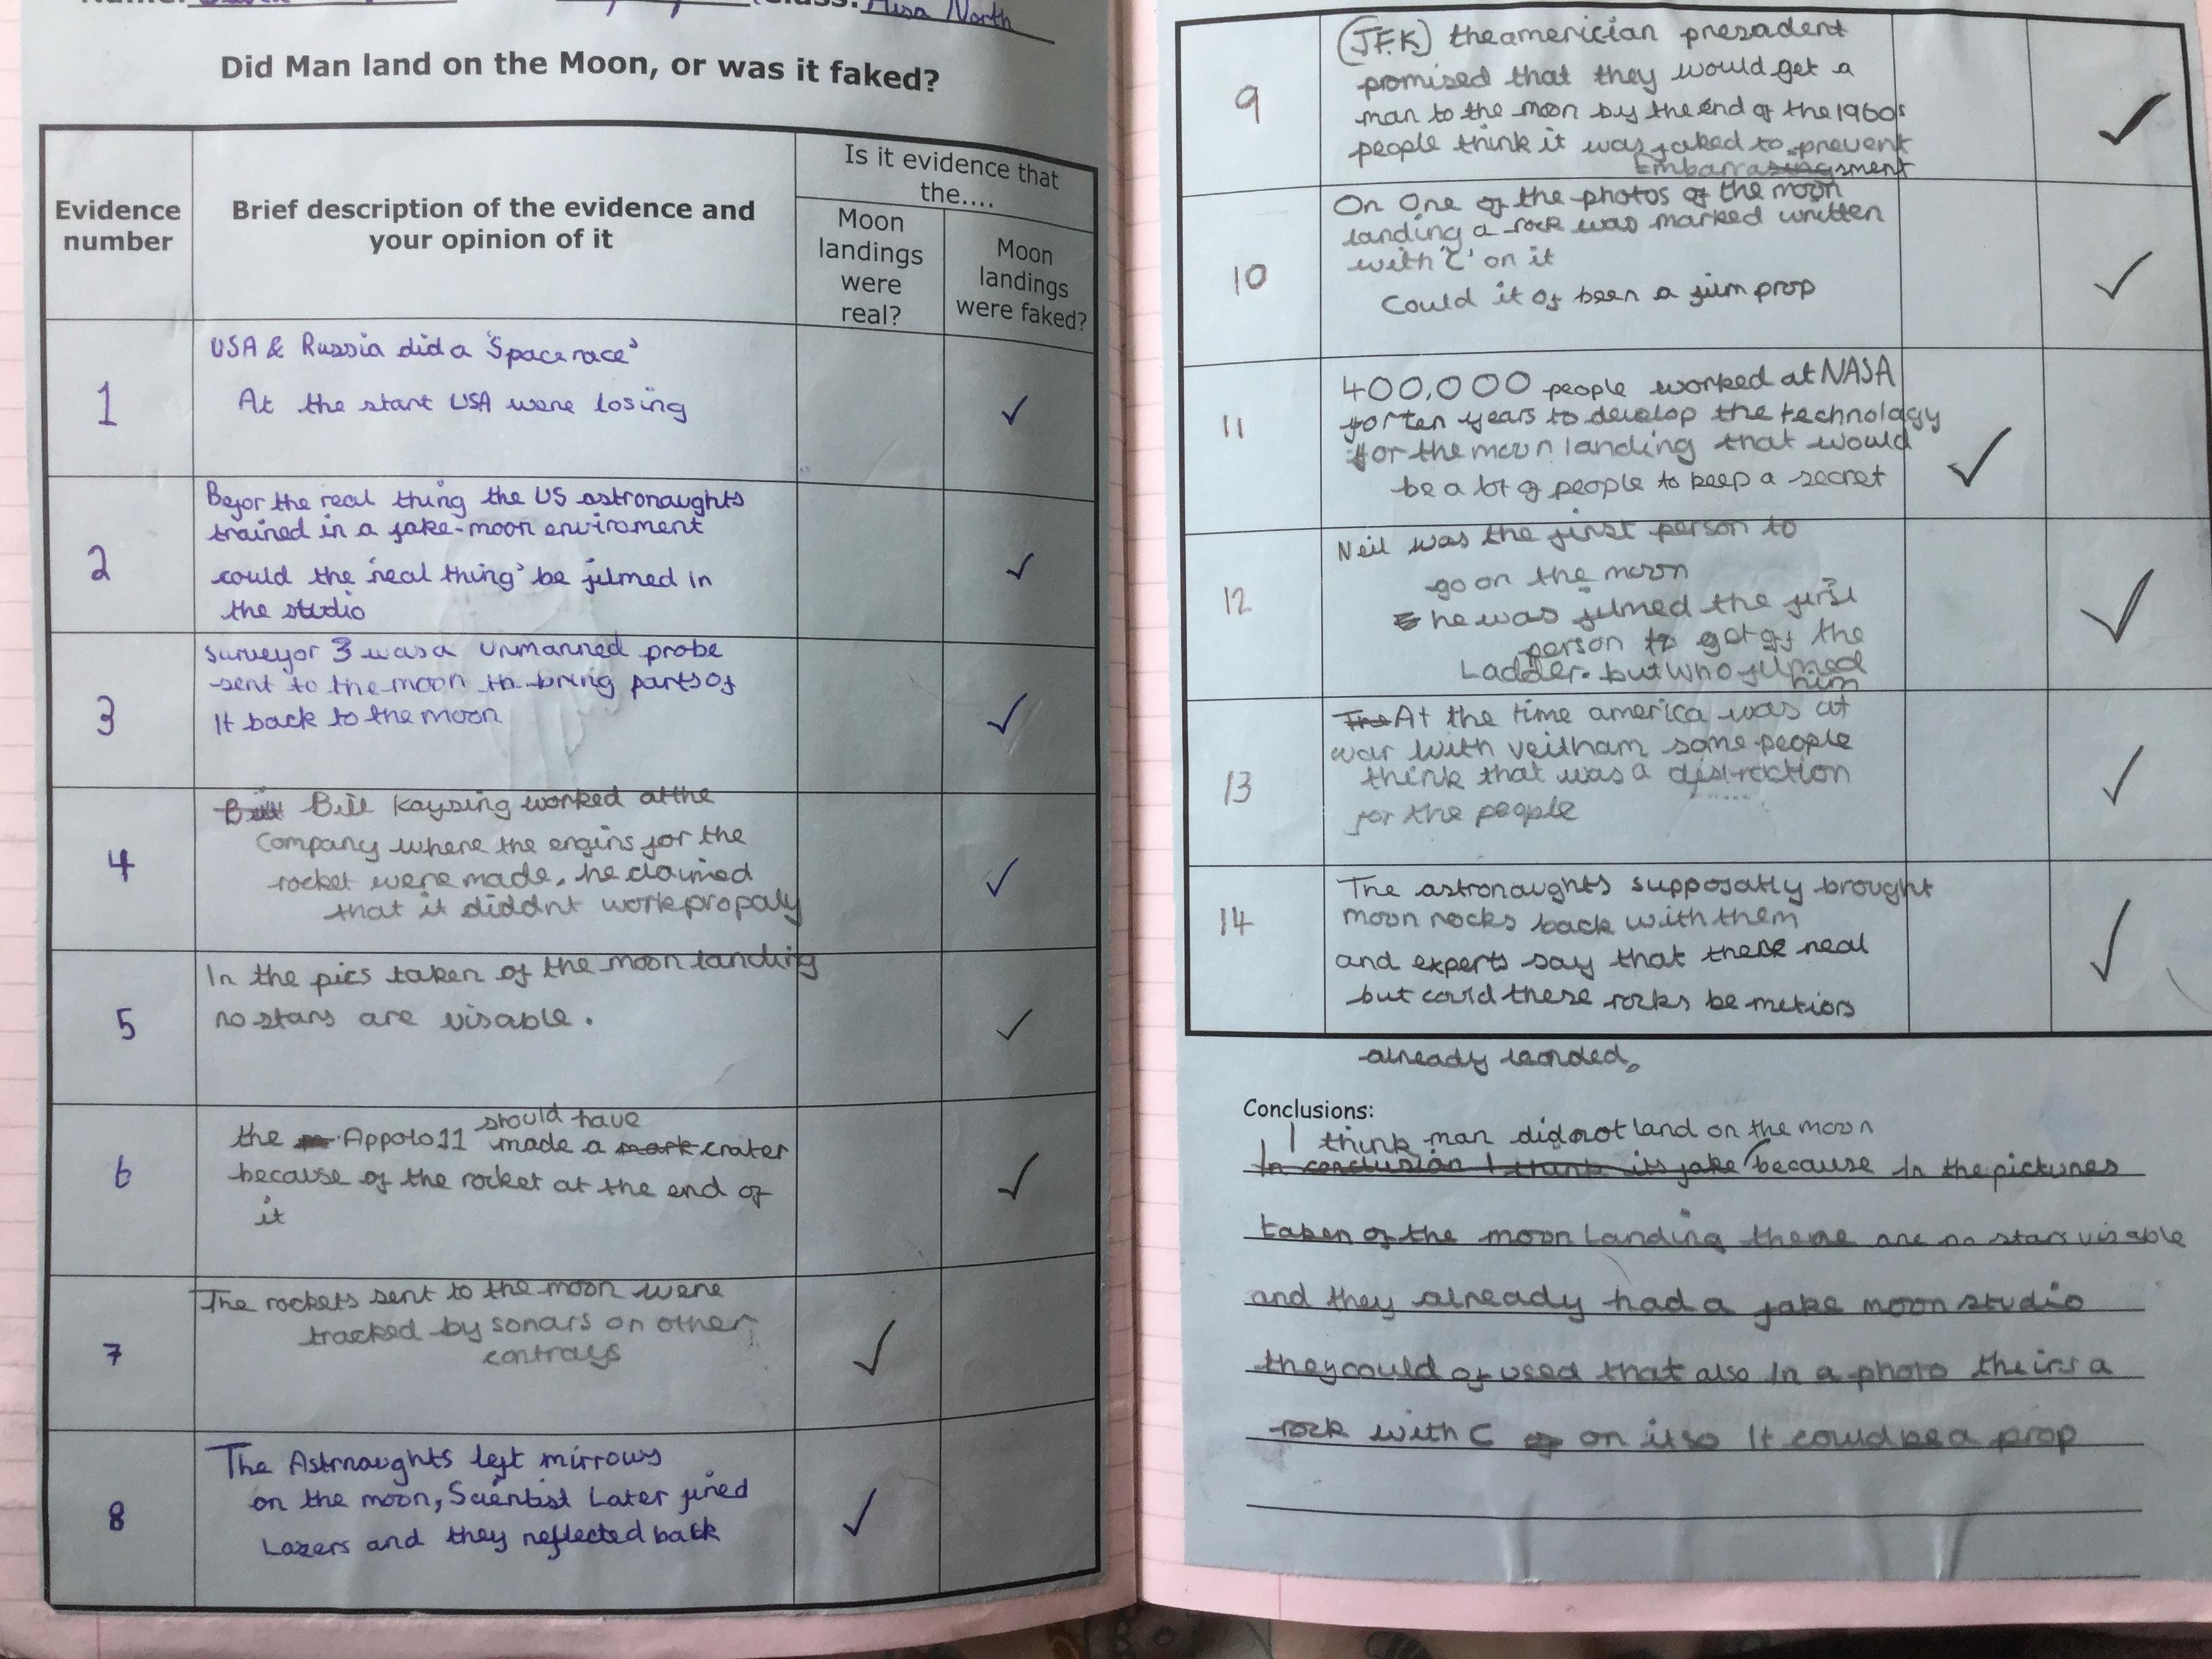 Class: Miss North
Did Man land on the Moon, or was it faked?
Evidence number
Brief description of the evidence and your opinion of it
Is it evidence that the....
Moon landings were real?
Moon landings were faked?
1
USA & Russia did a 'Space race'
At the start USA were losing
2
Befor the real thing the US astronaughts
trained in a fake-moon enviroment
could the 'real thing' be filmed in
the studio
3
Surveyor 3 was a unmanned probe
sent to the moon to bring parts of
it back to the moon
4
Bill Kaysing worked at the
Company where the engins for the
rocket were made, he claimed
that it diddnt work propaly
5
In the pics taken of the moon landing
no stars are visable.
6
should have
the Appolo 11 made a mark crater
because of the rocket at the end of
it
7
The rockets sent to the moon were
tracked by sonars on other
contrays
8
The Astrnaughts left mirrows
on the moon, Scientist Later fired
Lazers and they reflected back
9
(J.F.K) the americian presadent
promised that they would get a
man to the moon by the end of the 1960s
people think it was faked to prevent
Embarrasingsment
10
On One of the photos of the moon
landing a rock was marked written
with 'C' on it
Could it of been a film prop
11
400,000 people worked at NASA
for ten years to develop the technology
for the moon landing that would
be a lot of people to keep a secret
12
Neil was the first person to
go on the moon
he was filmed the first
person to get of the
Ladder. but who filmed
him
13
The At the time america was at
war with veitnam some people
think that was a distraction
for the people
14
The astronaughts supposatly brought
moon rocks back with them
and experts say that there real
but could these rocks be metiors
already landed.
Conclusions:
I think man did not land on the moon
In conclusion I think its fake because In the pictures
taken of the moon Landing there are no stars visable
and they already had a fake moon studio
they could of used that also In a photo theirs a
rock with C on it so It could be a prop